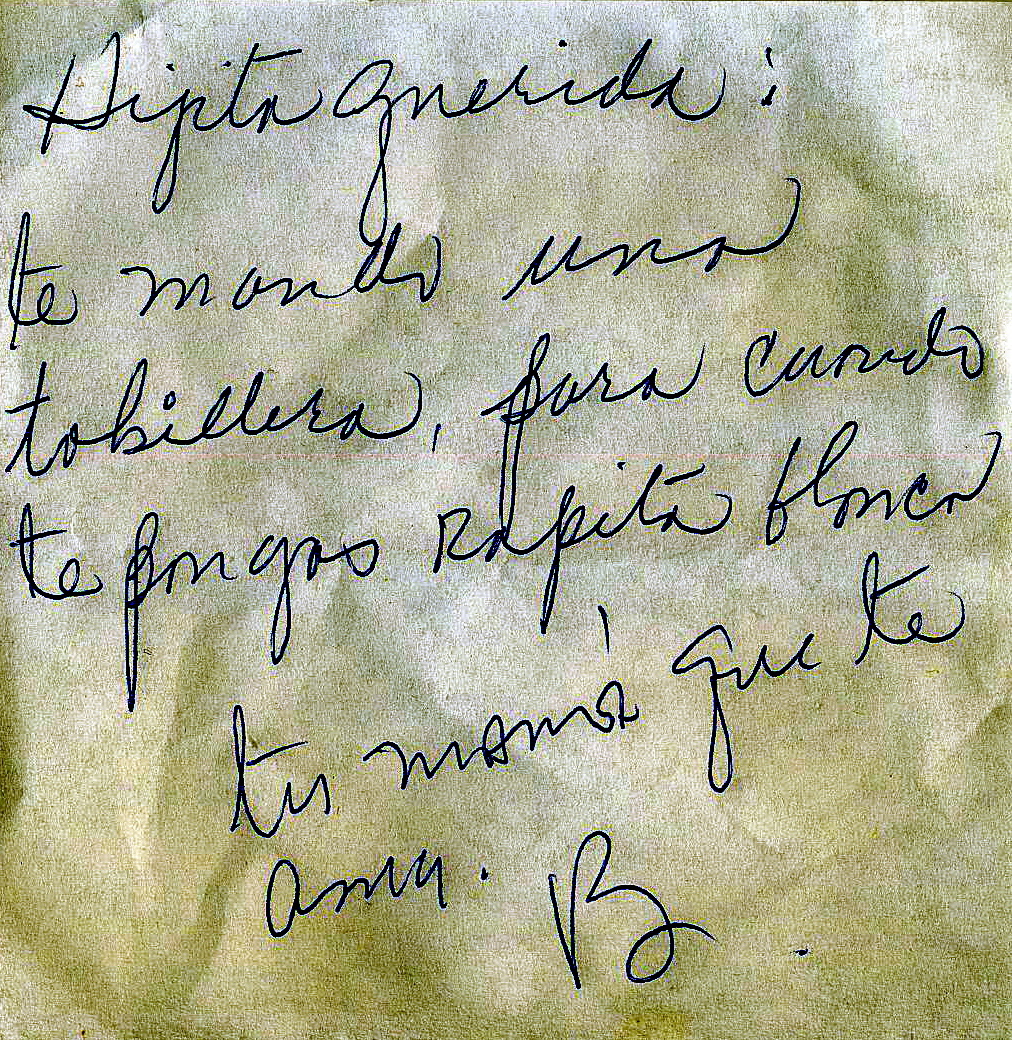 Hijita querida:
te mando una
tobillera, para cuando
te pongas Ropita blanca
tu mamá que te
ama. B.